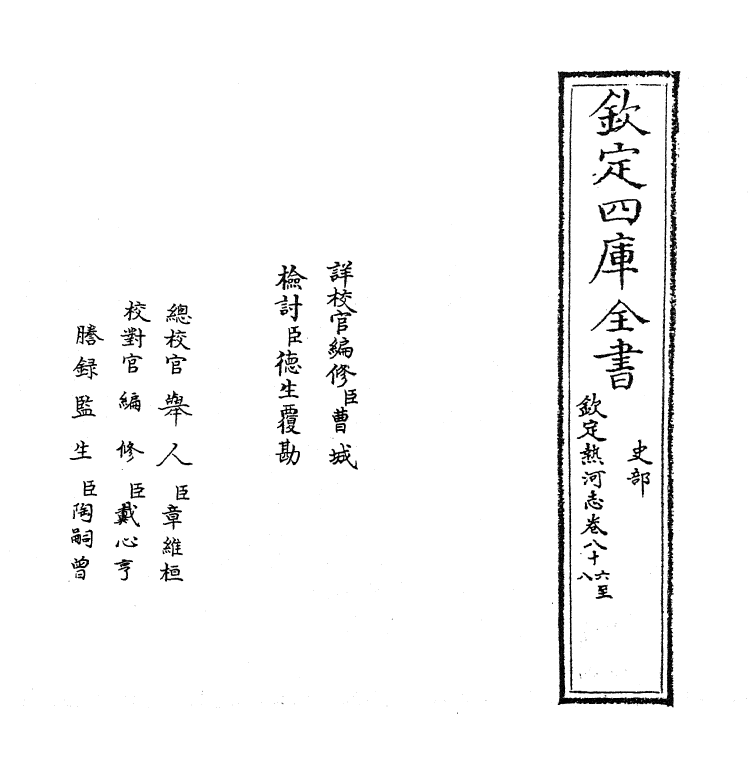 欽定四庫全書
史部
欽定熱河志卷八十六至八
詳校官編修臣曹城
檢討臣德生覆勘
總校官舉人臣章維桓
校對官編修臣戴心亨
謄録監生臣陶嗣曾